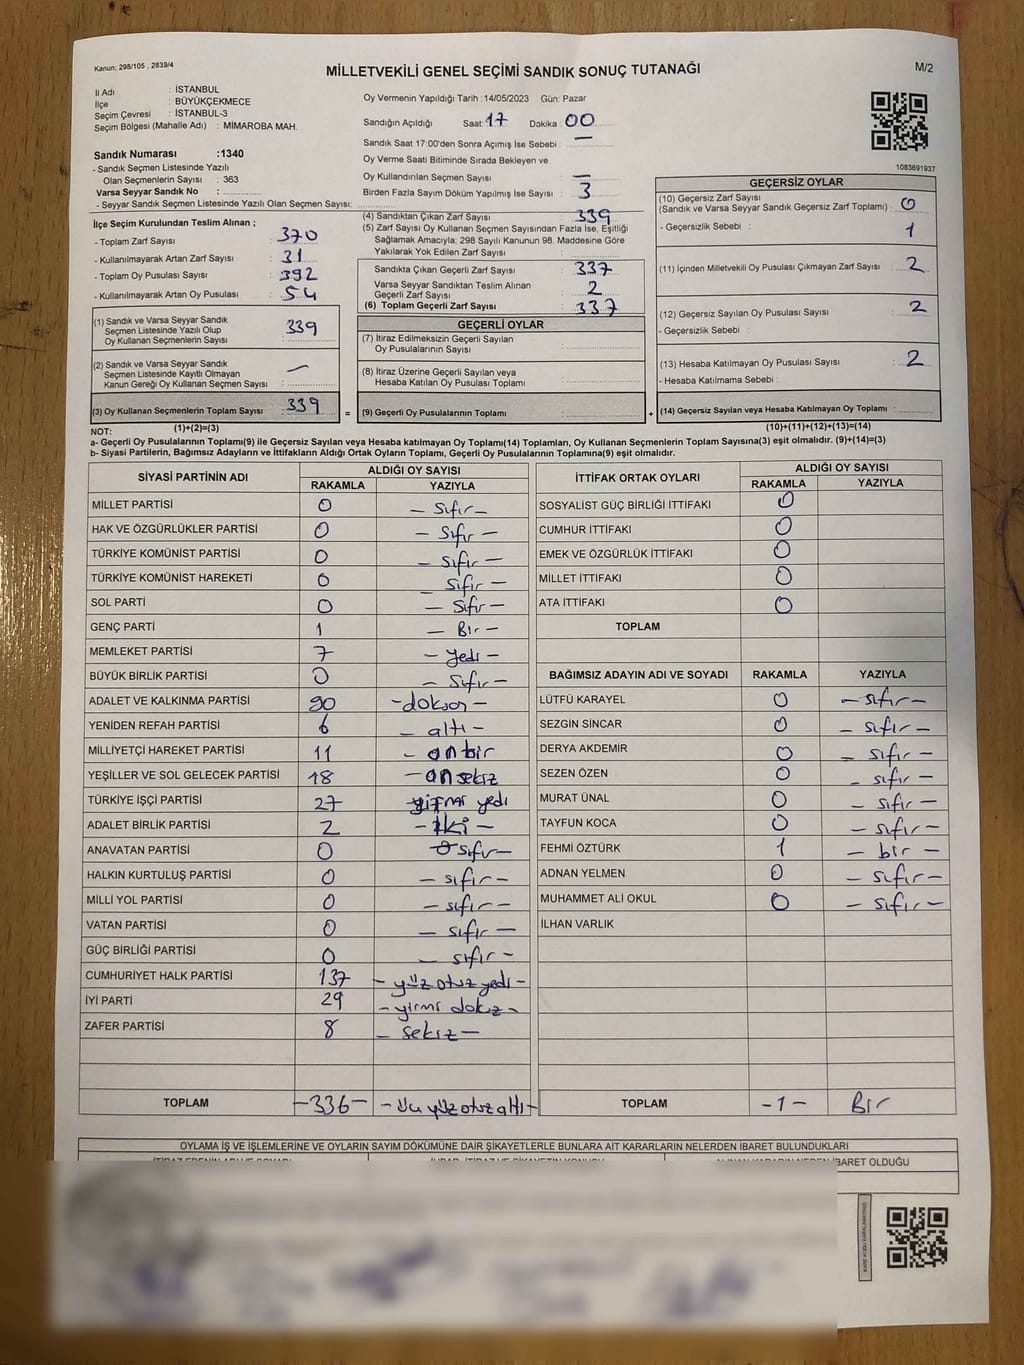 Kanun; 298/105 , 2839/4
MİLLETVEKİLİ GENEL SEÇİMİ SANDIK SONUÇ TUTANAĞI
M/2
İl Adı : İSTANBUL
İlçe : BÜYÜKÇEKMECE
Seçim Çevresi : İSTANBUL-3
Seçim Bölgesi (Mahalle Adı) : MİMAROBA MAH.
Sandık Numarası :1340
- Sandık Seçmen Listesinde Yazılı
Olan Seçmenlerin Sayısı : 363
Varsa Seyyar Sandık No :
- Seyyar Sandık Seçmen Listesinde Yazılı Olan Seçmen Sayısı:
Oy Vermenin Yapıldığı Tarih :14/05/2023 Gün: Pazar
Sandığın Açıldığı Saat 17 Dakika 00
Sandık Saat 17:00'den Sonra Açımış İse Sebebi : —
Oy Verme Saati Bitiminde Sırada Bekleyen ve
Oy Kullandırılan Seçmen Sayısı : —
Birden Fazla Sayım Döküm Yapılmış İse Sayısı : 3
1083691937
İlçe Seçim Kurulundan Teslim Alınan ;
- Toplam Zarf Sayısı : 370
- Kullanılmayarak Artan Zarf Sayısı : 31
- Toplam Oy Pusulası Sayısı : 392
- Kullanılmayarak Artan Oy Pusulası : 54
(1) Sandık ve Varsa Seyyar Sandık
Seçmen Listesinde Yazılı Olup
Oy Kullanan Seçmenlerin Sayısı : 339
(2) Sandık ve Varsa Seyyar Sandık
Seçmen Listesinde Kayıtlı Olmayan
Kanun Gereği Oy Kullanan Seçmen Sayısı : —
(3) Oy Kullanan Seçmenlerin Toplam Sayısı : 339
(1)+(2)=(3)
(4) Sandıktan Çıkan Zarf Sayısı : 339
(5) Zarf Sayısı Oy Kullanan Seçmen Sayısından Fazla İse, Eşitliği
Sağlamak Amacıyla; 298 Sayılı Kanunun 98. Maddesine Göre
Yakılarak Yok Edilen Zarf Sayısı :
Sandıkta Çıkan Geçerli Zarf Sayısı : 337
Varsa Seyyar Sandıktan Teslim Alınan
Geçerli Zarf Sayısı : 2
(6) Toplam Geçerli Zarf Sayısı : 337
GEÇERLİ OYLAR
(7) İtiraz Edilmeksizin Geçerli Sayılan
Oy Pusulalarının Sayısı :
(8) İtiraz Üzerine Geçerli Sayılan veya
Hesaba Katılan Oy Pusulası Toplamı :
= (9) Geçerli Oy Pusulalarının Toplamı :
GEÇERSİZ OYLAR
(10) Geçersiz Zarf Sayısı
(Sandık ve Varsa Seyyar Sandık Geçersiz Zarf Toplamı) : 0
- Geçersizlik Sebebi : 1
(11) İçinden Milletvekili Oy Pusulası Çıkmayan Zarf Sayısı : 2
(12) Geçersiz Sayılan Oy Pusulası Sayısı : 2
- Geçersizlik Sebebi :
(13) Hesaba Katılmayan Oy Pusulası Sayısı : 2
- Hesaba Katılmama Sebebi :
+ (14) Geçersiz Sayılan veya Hesaba Katılmayan Oy Toplamı :
(10)+(11)+(12)+(13)=(14)
NOT:
a- Geçerli Oy Pusulalarının Toplamı(9) ile Geçersiz Sayılan veya Hesaba katılmayan Oy Toplamı(14) Toplamları, Oy Kullanan Seçmenlerin Toplam Sayısına(3) eşit olmalıdır. (9)+(14)=(3)
b- Siyasi Partilerin, Bağımsız Adayların ve İttifakların Aldığı Ortak Oyların Toplamı, Geçerli Oy Pusulalarının Toplamına(9) eşit olmalıdır.
SİYASİ PARTİNİN ADI ALDIĞI OY SAYISI
RAKAMLA YAZIYLA
MİLLET PARTİSİ 0 – Sıfır –
HAK VE ÖZGÜRLÜKLER PARTİSİ 0 – Sıfır –
TÜRKİYE KOMÜNİST PARTİSİ 0 – Sıfır –
TÜRKİYE KOMÜNİST HAREKETİ 0 – Sıfır –
SOL PARTİ 0 – Sıfır –
GENÇ PARTİ 1 – Bir –
MEMLEKET PARTİSİ 7 – Yedi –
BÜYÜK BİRLİK PARTİSİ 0 – Sıfır –
ADALET VE KALKINMA PARTİSİ 90 – doksan –
YENİDEN REFAH PARTİSİ 6 – altı –
MİLLİYETÇİ HAREKET PARTİSİ 11 – onbir
YEŞİLLER VE SOL GELECEK PARTİSİ 18 – onsekiz
TÜRKİYE İŞÇİ PARTİSİ 27 yirmi yedi
ADALET BİRLİK PARTİSİ 2 – iki –
ANAVATAN PARTİSİ 0 sıfır –
HALKIN KURTULUŞ PARTİSİ 0 – sıfır –
MİLLİ YOL PARTİSİ 0 – sıfır –
VATAN PARTİSİ 0 – sıfır –
GÜÇ BİRLİĞİ PARTİSİ 0 – sıfır –
CUMHURİYET HALK PARTİSİ 137 – yüz otuz yedi –
İYİ PARTİ 29 – yirmi dokuz –
ZAFER PARTİSİ 8 – sekiz –
TOPLAM –336– – üç yüz otuz altı –
İTTİFAK ORTAK OYLARI ALDIĞI OY SAYISI
RAKAMLA YAZIYLA
SOSYALİST GÜÇ BİRLİĞİ İTTİFAKI 0
CUMHUR İTTİFAKI 0
EMEK VE ÖZGÜRLÜK İTTİFAKI 0
MİLLET İTTİFAKI 0
ATA İTTİFAKI 0
TOPLAM
BAĞIMSIZ ADAYIN ADI VE SOYADI RAKAMLA YAZIYLA
LÜTFÜ KARAYEL 0 – sıfır –
SEZGİN SİNCAR 0 – sıfır –
DERYA AKDEMİR 0 – sıfır –
SEZEN ÖZEN 0 – sıfır –
MURAT ÜNAL 0 – sıfır –
TAYFUN KOCA 0 – sıfır –
FEHMİ ÖZTÜRK 1 – bir –
ADNAN YELMEN 0 – sıfır –
MUHAMMET ALİ OKUL 0 – sıfır –
İLHAN VARLIK
TOPLAM –1– Bir
OYLAMA İŞ VE İŞLEMLERİNE VE OYLARIN SAYIM DÖKÜMÜNE DAİR ŞİKAYETLERLE BUNLARA AİT KARARLARIN NELERDEN İBARET BULUNDUKLARI
İBARET OLDUĞU
KARE KODU KARALAMAYINIZ